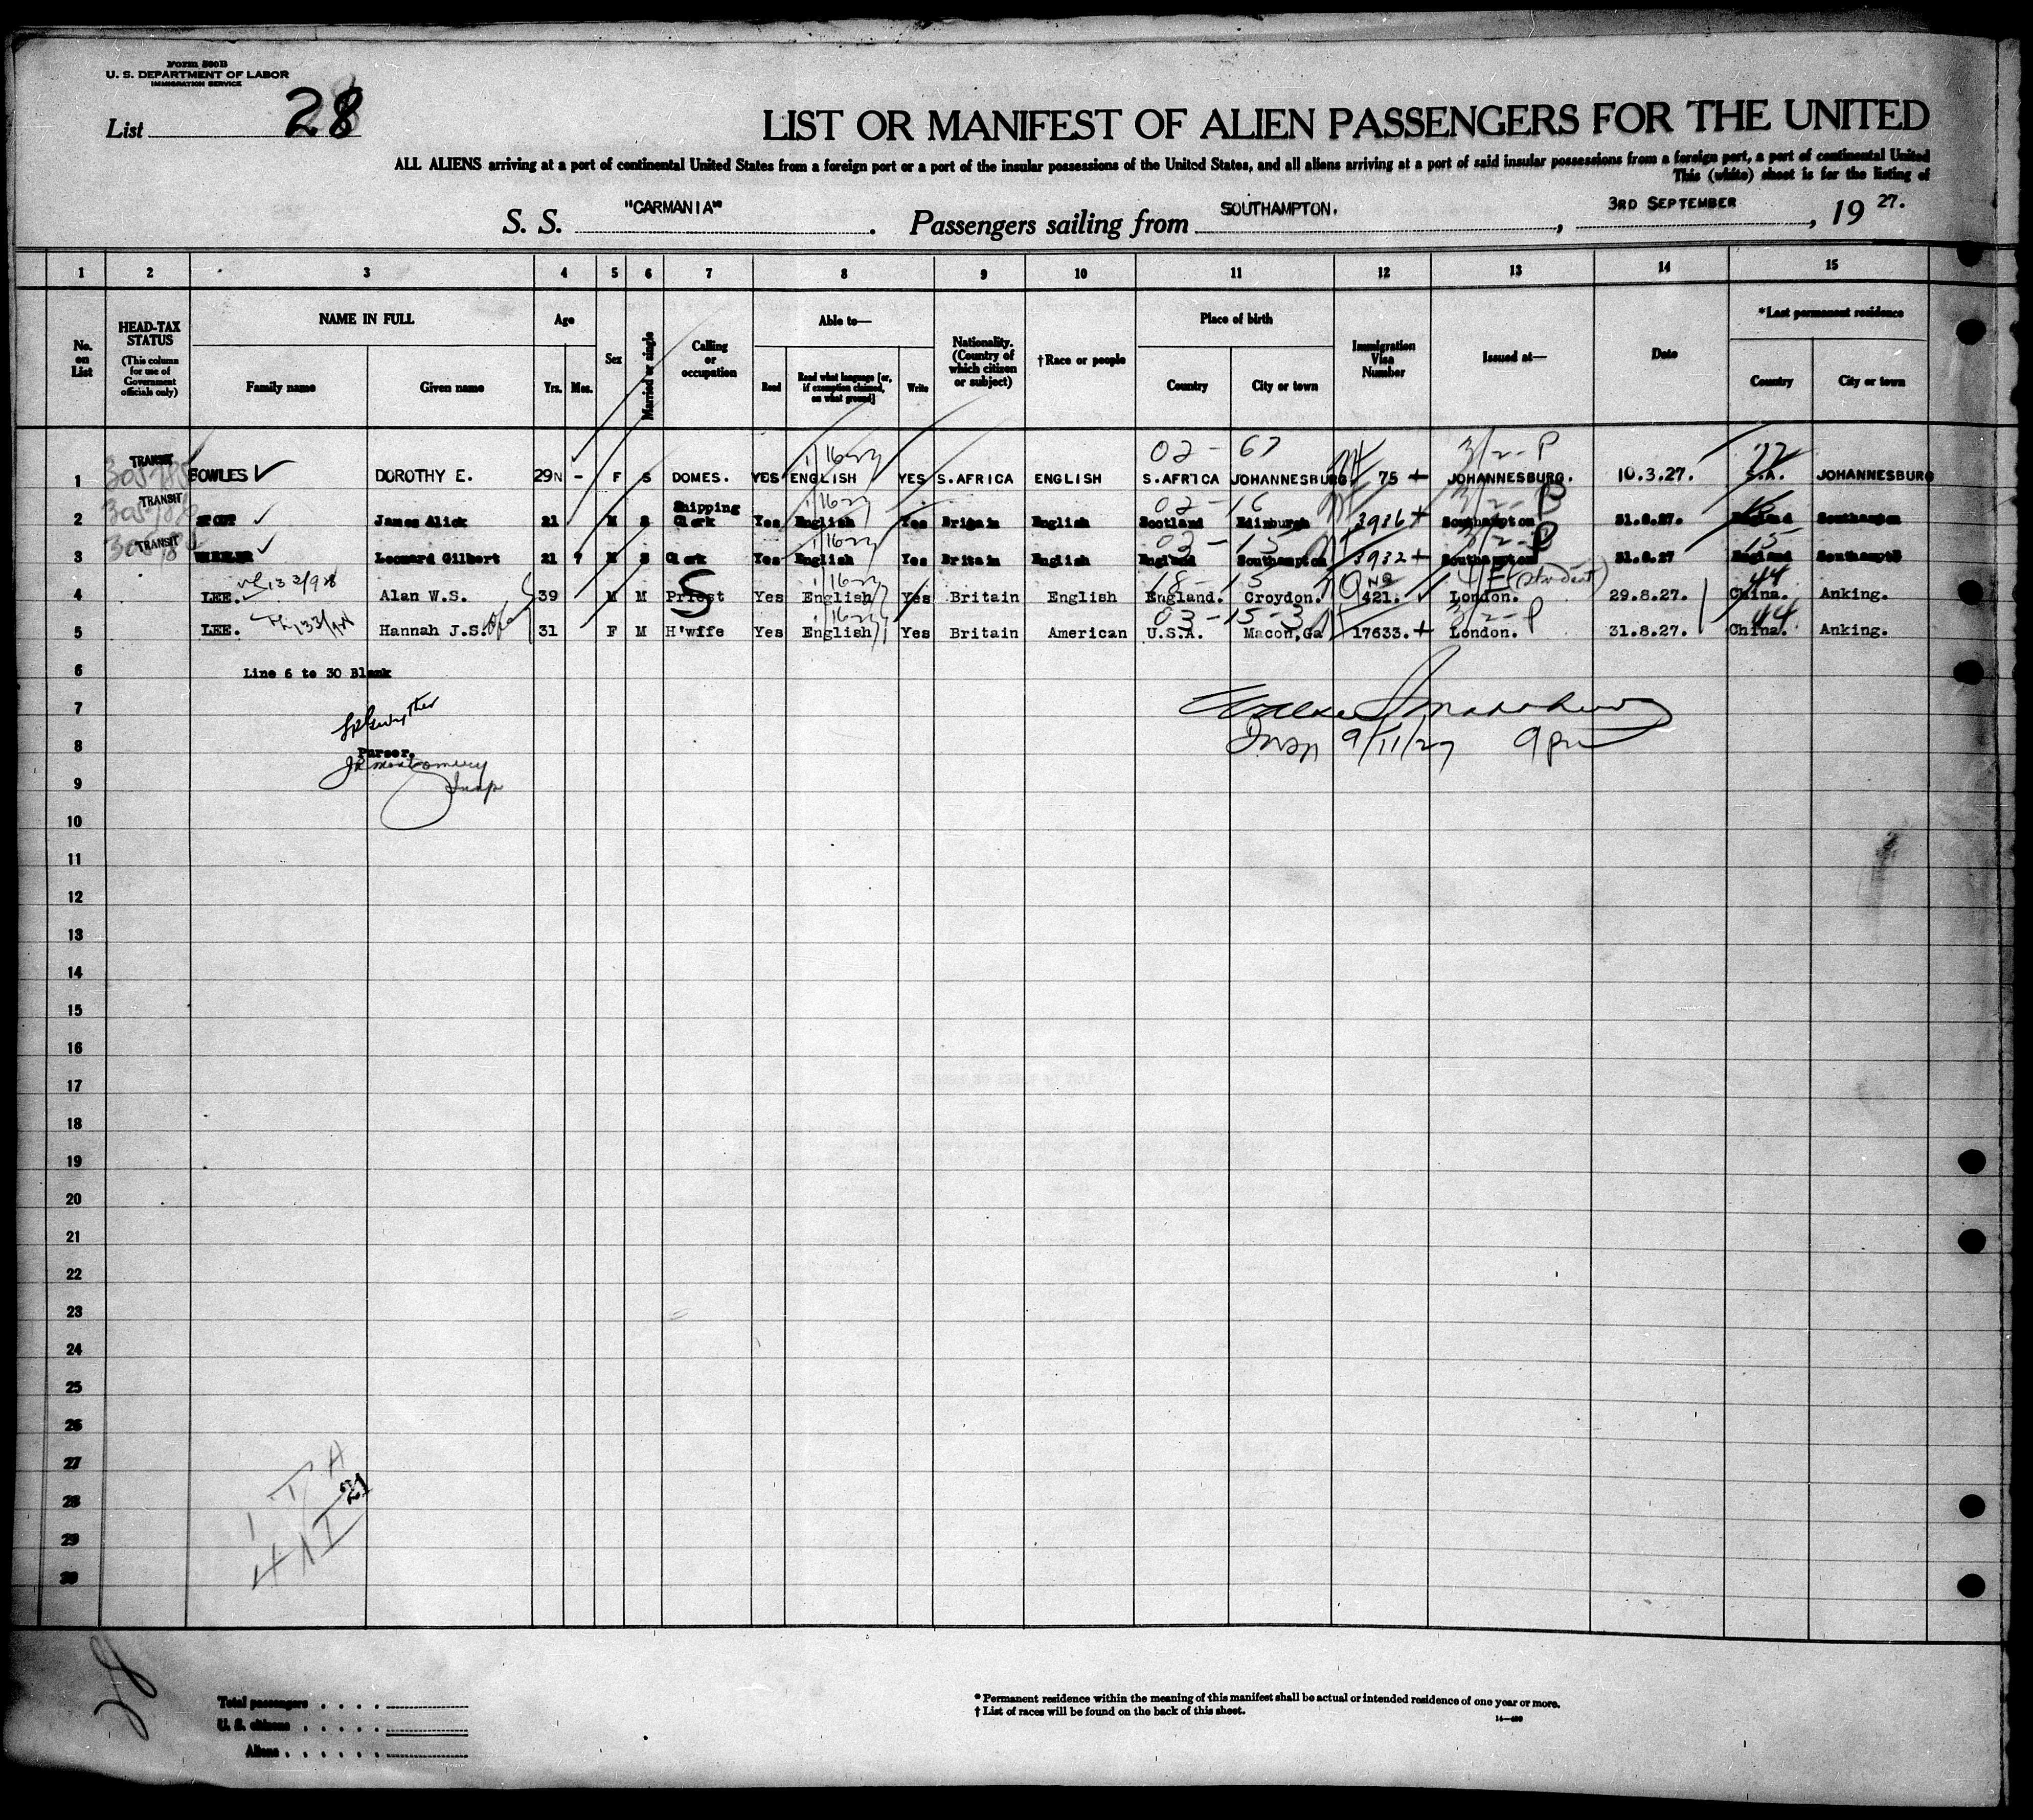 Form 500B
U. S. DEPARTMENT OF LABOR
IMMIGRATION SERVICE
List 28
LIST OR MANIFEST OF ALIEN PASSENGERS FOR THE UNITED
ALL ALIENS arriving at a port of continental United States from a foreign port or a port of the insular possessions of the United States, and all aliens arriving at a port of said insular possessions from a foreign port, a port of continental United
This (white) sheet is for the listing of
S. S. "CARMANIA". Passengers sailing from SOUTHAMPTON., 3RD SEPTEMBER, 19 27.
1 2 3 4 5 6 7 8 9 10 11 12 13 14 15
No. on List
HEAD-TAX STATUS (This column for use of Government officials only)
NAME IN FULL
Family name Given name
Age
Yrs. Mos.
Sex
Married or single
Calling or occupation
Able to—
Read Read what language [or, if exemption claimed, on what ground] Write
Nationality. (Country of which citizen or subject)
†Race or people
Place of birth
Country City or town
Immigration Visa Number
Issued at—
Date
*Last permanent residence
Country City or town
02 - 67 3/2-P
1 TRANSIT FOWLES DOROTHY E. 29 - F S DOMES. YES ENGLISH YES S.AFRICA ENGLISH S.AFRICA JOHANNESBURG 75 + JOHANNESBURG. 10.3.27. S.A. JOHANNESBURG
02 - 16
2 TRANSIT James Alick 21 M S Shipping Clerk Yes English Yes Britain English Scotland Edinburgh 3936+ Southampton 31.8.27. England Southampton
3 TRANSIT Leonard Gilbert 21 7 M S Clerk Yes English Yes Britain English England Southampton 3932+ Southampton 31.8.27 England Southampton
4 LEE. Alan W.S. 39 M M Priest Yes English Yes Britain English England. Croydon. 421. London. (student) 29.8.27. China. Anking.
03-15-3 3/2-P 44
5 LEE. Hannah J.S. 31 F M H'wife Yes English Yes Britain American U.S.A. Macon,Ga 17633.+ London. 31.8.27. China. Anking.
6 Line 6 to 30 Blank
7
8 Purser. 9/11/27 9 pm
JR Montgomery
9 Insp
10
11
12
13
14
15
16
17
18
19
20
21
22
23
24
25
26
27
28
29
30
28
Total passengers
U. S. citizens
Aliens
* Permanent residence within the meaning of this manifest shall be actual or intended residence of one year or more.
† List of races will be found on the back of this sheet.